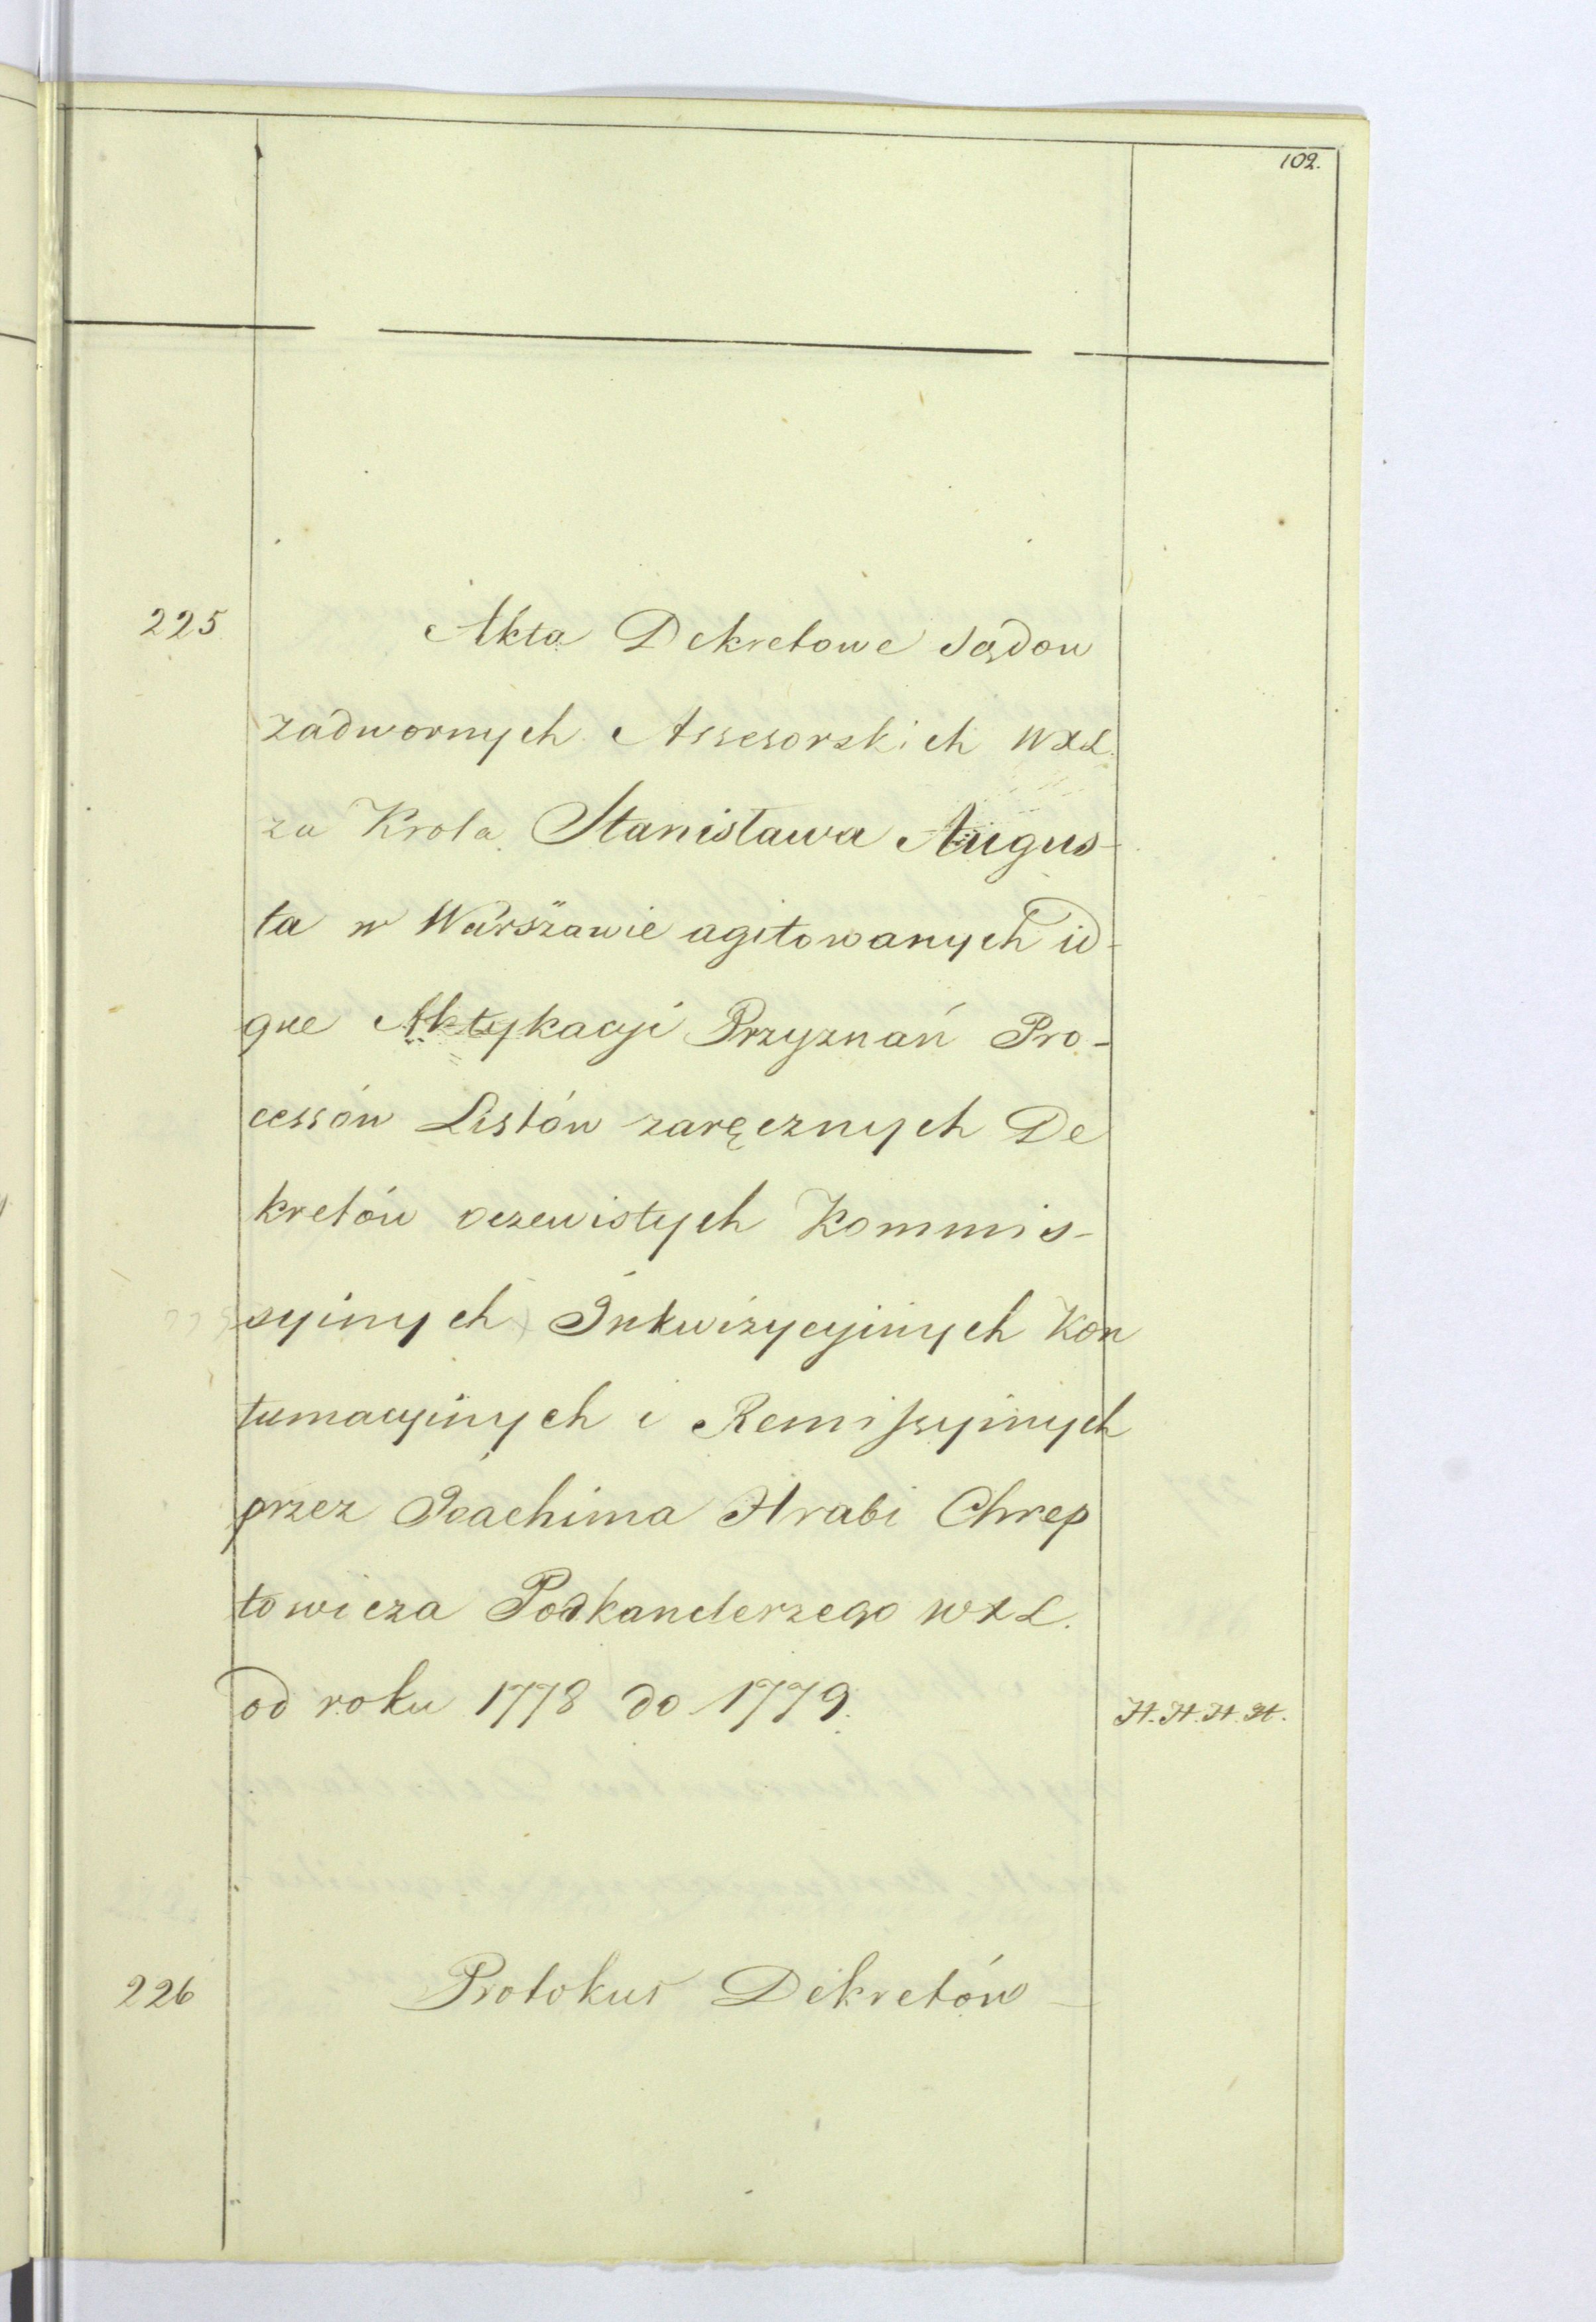 102.
225
Akta Dekretowe Sądow
zadwornych Assesorskich WXL.
za Krola Stanisława Augus-
ta w Warszawie agitowanych id-
que Aktykacji Przyznań Pro-
cessów Listów zaręcznych De
kretów oczewistych Kommis-
syinych Inkwizycyinych Kon
tumacyinych i Remissyinych
przez Joachima Hrabi Chrep
towicza Podkanclerzego WXL.
od roku 1778 do 1779.
H. H. H. H.
226
Protokuł Dekretów